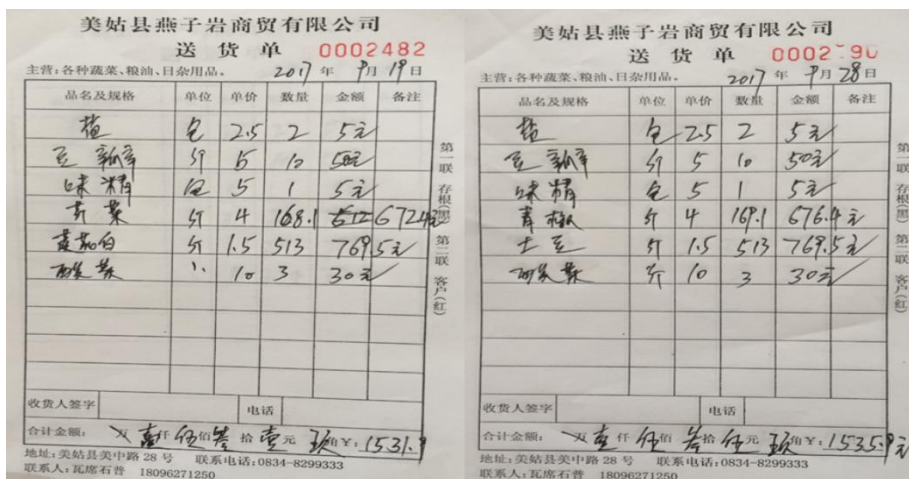 美姑县燕子岩商贸有限公司
送货单 0002482
主营:各种蔬菜、粮油、日杂用品。 2017年9月19日
品名及规格 单位 单价 数量 金额 备注
盐 包 2.5 2 5元
豆瓣 斤 5 10 50元
味精 包 5 1 5元
芹菜 斤 4 168.1 672.4元
莲花白 斤 1.5 513 769.5元
酸菜 10 3 30元
收货人签字 电话
合计金额: 万壹仟伍佰叁拾壹元玖角¥:1531.9
地址:美姑县美中路28号 联系电话:0834-8299333
联系人:瓦席石普 18096271250
第一联 存根(黑) 第二联 客户(红)
美姑县燕子岩商贸有限公司
送货单 0002 90
主营:各种蔬菜、粮油、日杂用品。 2017年9月28日
品名及规格 单位 单价 数量 金额 备注
盐 包 2.5 2 5元
豆瓣 斤 5 10 50元
味精 包 5 1 5元
青椒 斤 4 169.1 676.4元
土豆 斤 1.5 513 769.5元
酸菜 斤 10 3 30元
收货人签字 电话
合计金额: 万壹仟伍佰叁拾伍元玖角¥:1535.9元
地址:美姑县美中路28号 联系电话:0834-8299333
联系人:瓦席石普 18096271250
第一联 存根(黑) 第二联 客户(红)